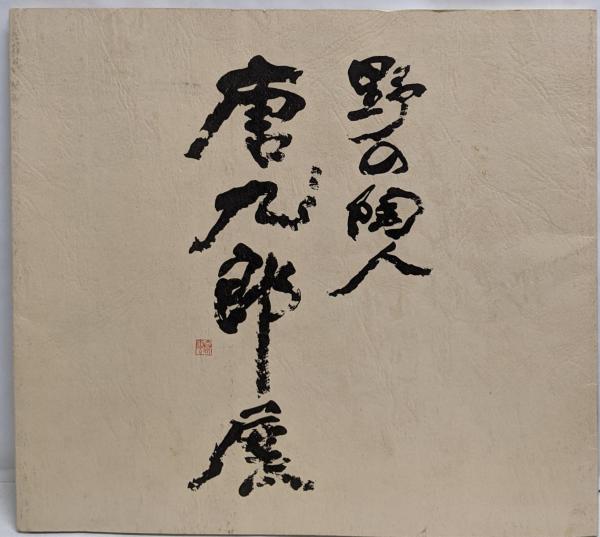 野の陶人
唐九郎展